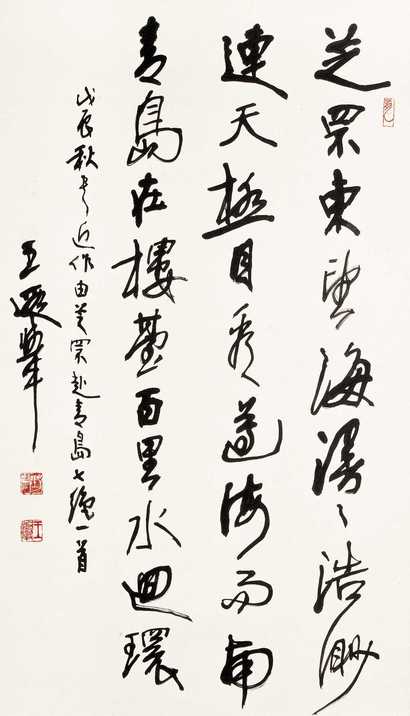 芝罘東望海漫々浩渺
連天極目看遵海而南
青島在樓臺百里水迴環
戊辰秋書近作由芝罘赴青島七絕一首
王遐舉